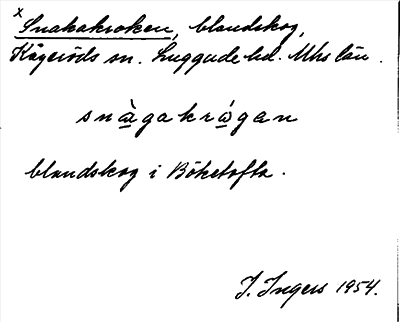 x Snakakroken, blandskog,
Kågeröds sn. Luggude hd. Mhs län.
snàgakrágan
blandskog i Böketofta.
I. Ingers 1954.